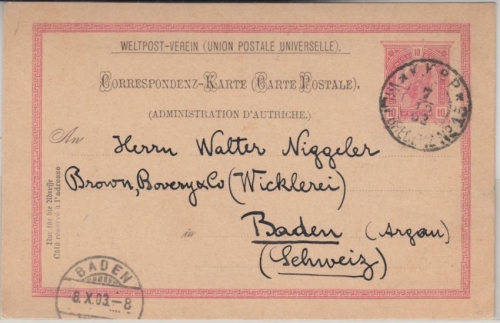 WELTPOST-VEREIN (UNION POSTALE UNIVERSELLE).
CORRESPONDENZ-KARTE (CARTE POSTALE).
(ADMINISTRATION D'AUTRICHE.)
10
10 10
7
03
An
Herrn Walter Niggeler
Brown, Bovery & Co (Wicklerei)
in
Baden (Argau)
(Schweiz)
Nur für die Adresse
Côté réservé à l'adresse
BADEN
8.X.03.-8